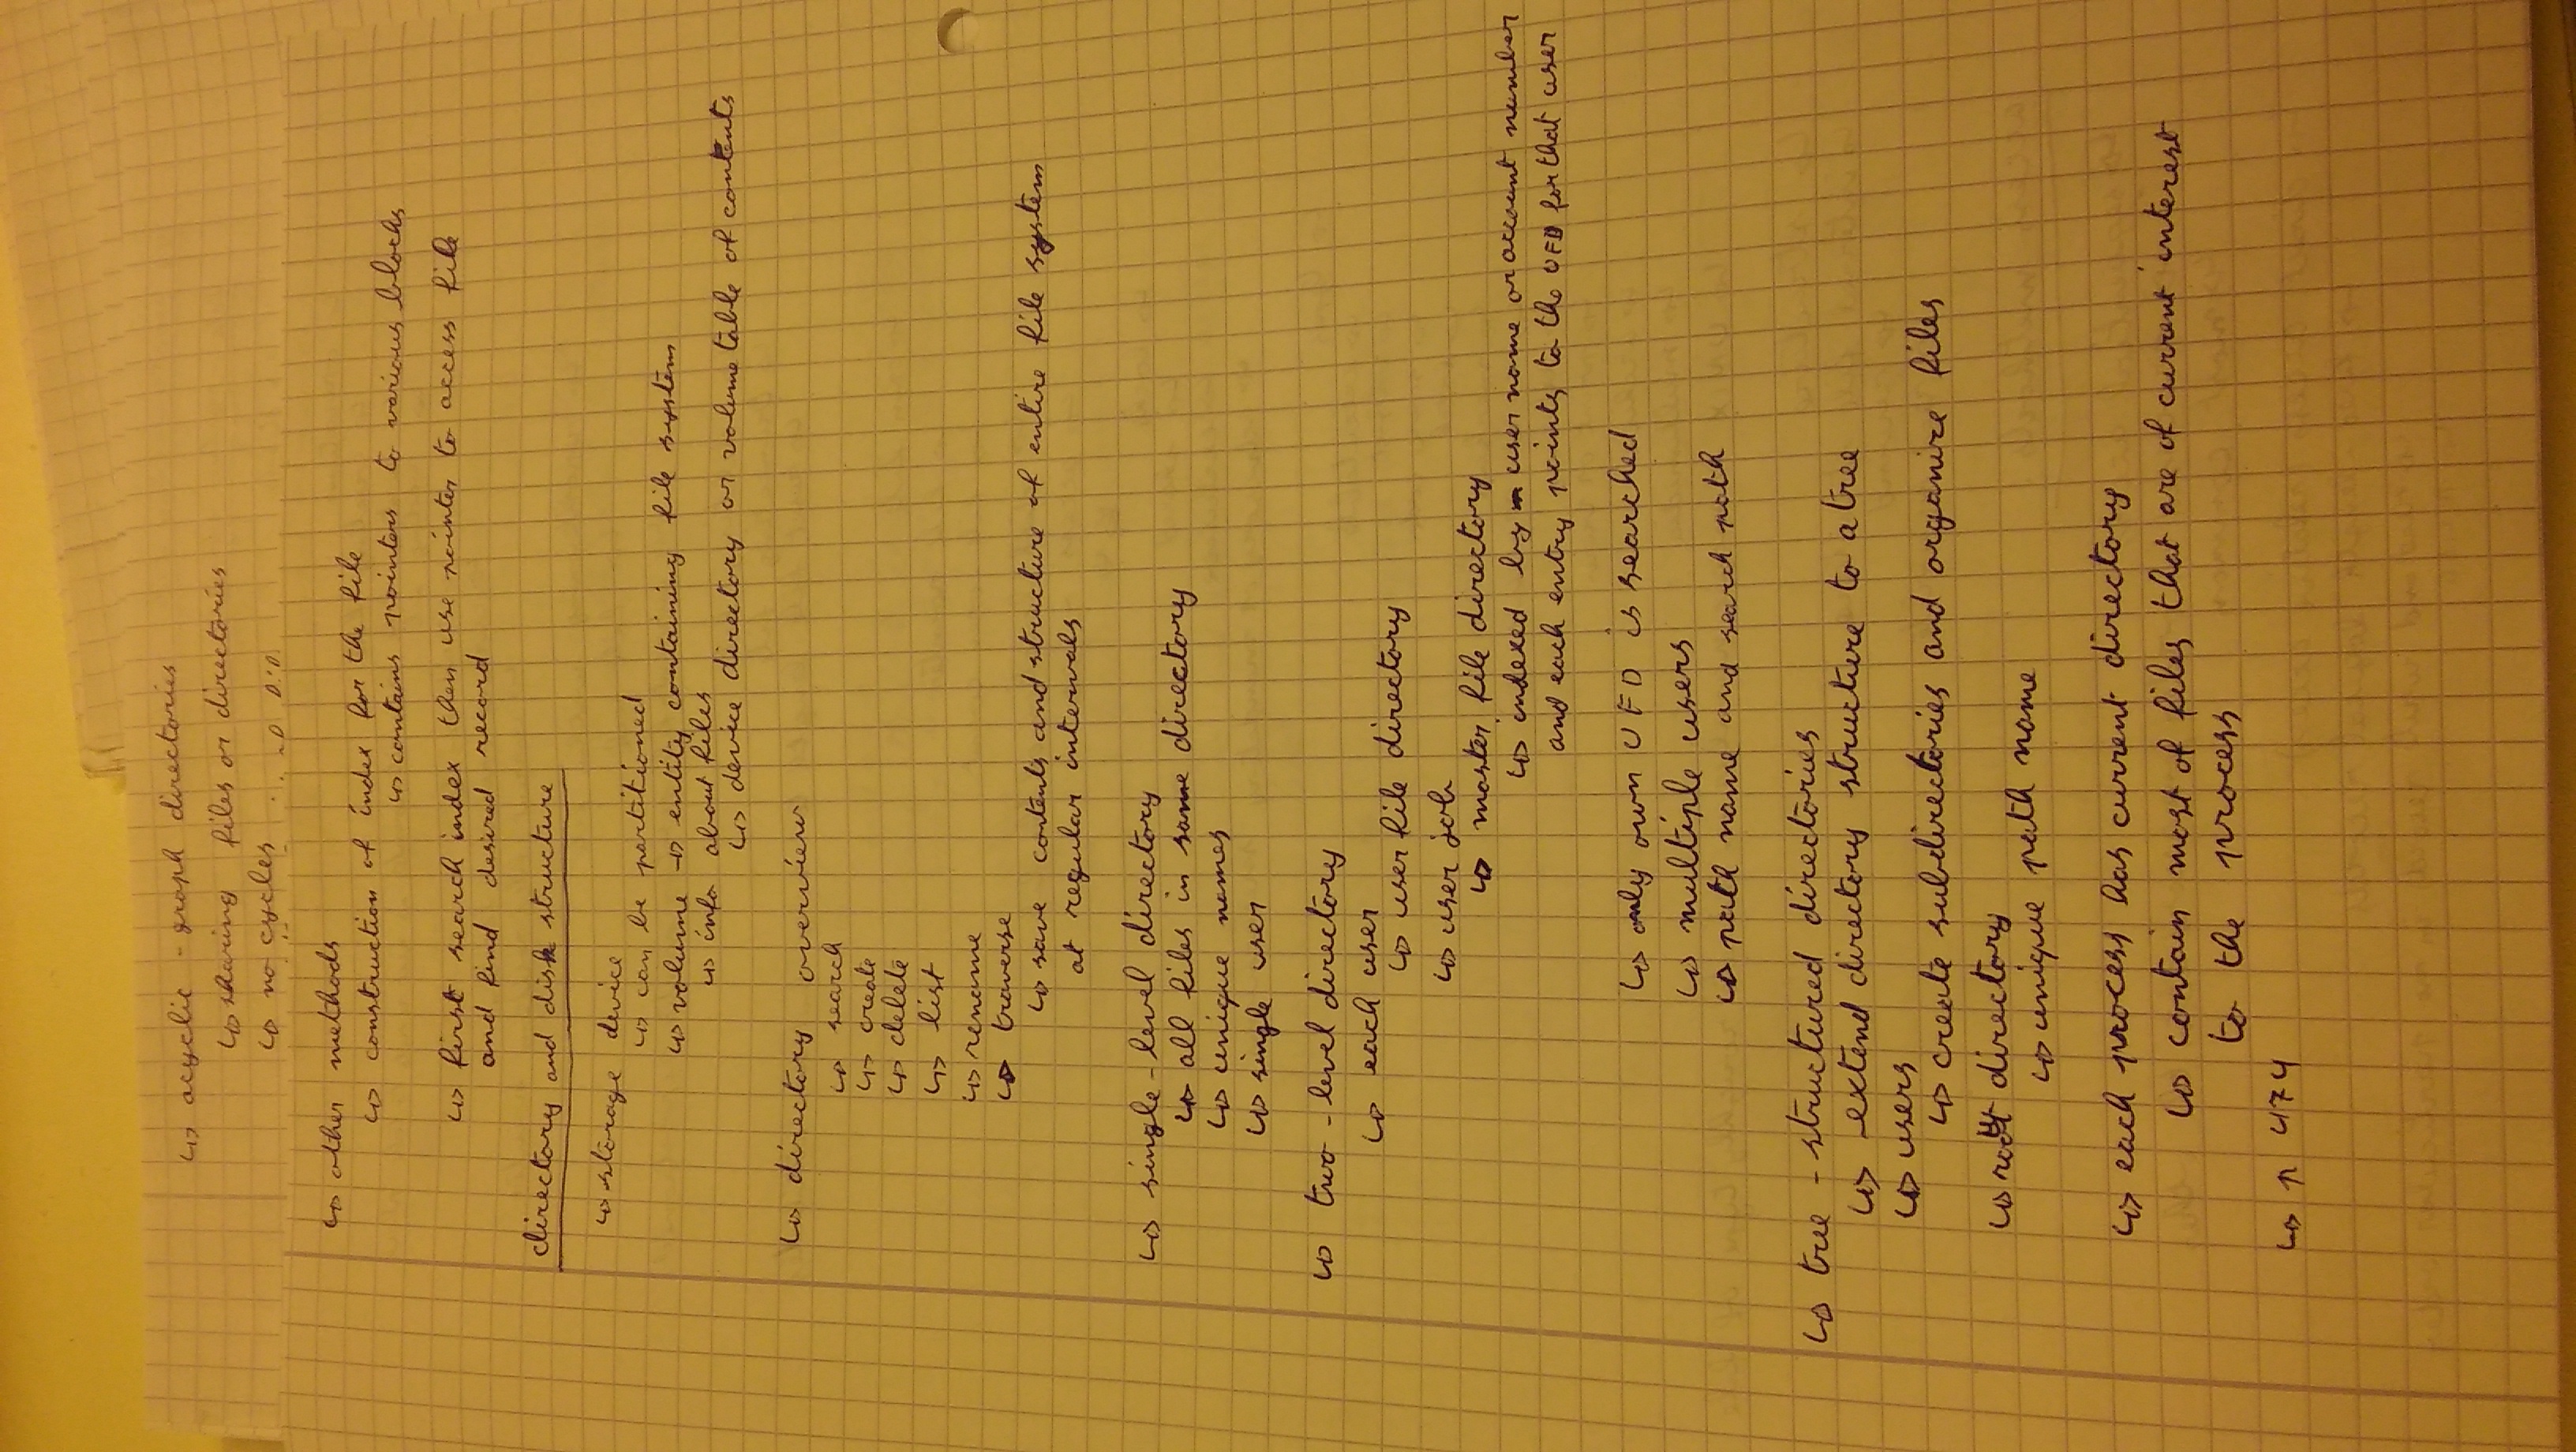 ↳ acyclic - graph directories
↳ sharing files or directories
↳ no cycles
↳ other methods
↳ construction of index for the file
↳ contains pointers to various blocks
↳ first search index then use pointer to access file
and find desired record
directory and disk structure
↳ storage device
↳ can be partitioned
↳ volume → entity containing file system
↳ info about files
↳ device directory or volume table of contents
↳ directory overview
↳ search
↳ create
↳ delete
↳ list
↳ rename
↳ traverse
↳ save contents and structure of entire file system
at regular intervals
↳ single - level directory
↳ all files in same directory
↳ unique names
↳ single user
↳ two - level directory
↳ each user
↳ user file directory
↳ user job
↳ master file directory
↳ indexed by user name or account number
and each entry points to the UFD for that user
↳ only own UFD is searched
↳ multiple users
↳ path name and search path
↳ tree - structured directories
↳ extend directory structure to a tree
↳ users
↳ create subdirectories and organize files
↳ root directory
↳ unique path name
↳ each process has current directory
↳ contain most of files that are of current interest
to the process
↳ p 474